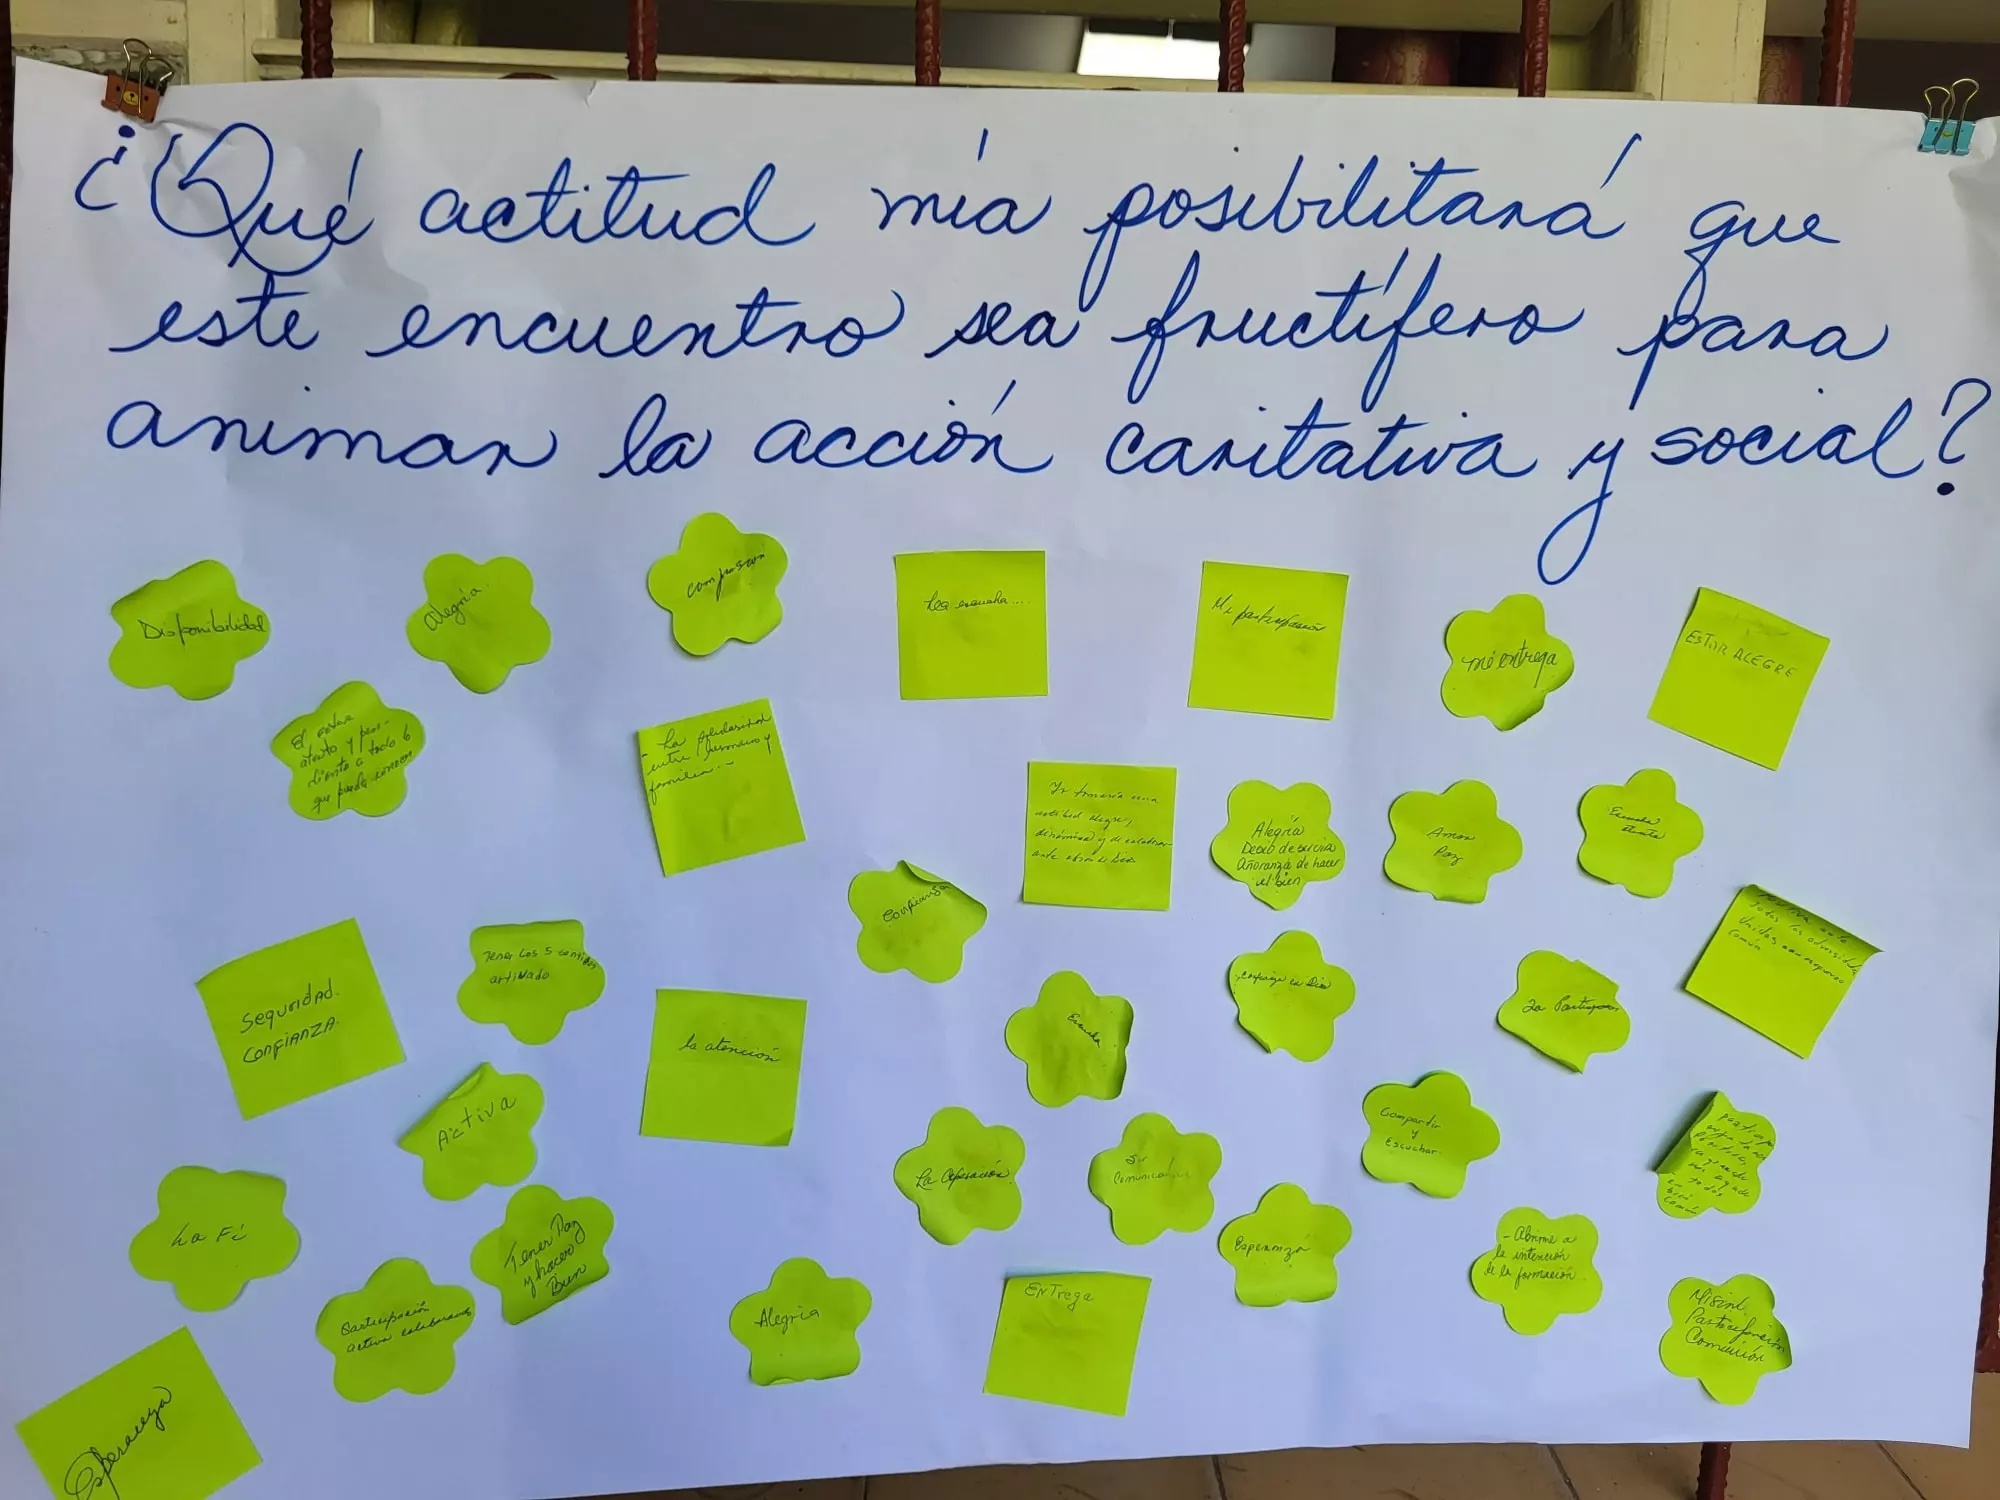 ¿Qué actitud mía posibilitará que
este encuentro sea fructífero para
animar la acción caritativa y social?
Disponibilidad
alegría
compasión
La escucha....
Mi participación
mi entrega
ESTAR ALEGRE
El estar
atento y pen-
diente a todo lo
que pueda
- La solidaridad
entre hermanos y
familia..-
Yo tomaría una
actitud alegre,
dinámica y de
ante
Alegría
Deseo de servir
Añoranza de hacer
el bien
Amor
Paz
Escucha
Confianza
ante
todos
Unidos
Común
SEGURIDAD.
CONFIANZA.
Tener Los 5 sentidos
activado
la atención
Escucha
confianza en Dios
La Participación
Activa
La Fé
Tener Paz
y hacer
Bien
La Cooperación
Ser
Comunicativa
Compartir
y
Escuchar.
todos
bien
común
Esperanza
- Abrirme a
la intención
de la formación.
Participación
activa
Alegria
ENTrega
Misión,
Participación
Comunión
Esperanza